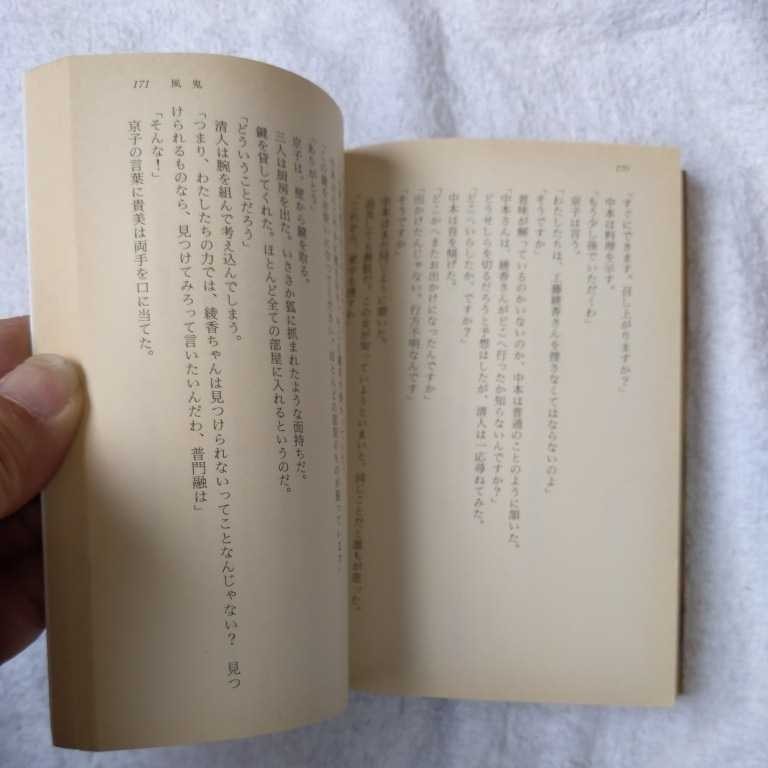 170
「すぐにできます。召し上がりますか?」
中本は料理を示す。
「もう少し後でいただくわ」
京子は言う。
「わたしたちは、工藤綾香さんを捜さなくてはならないのよ」
「そうですか」
意味が解っているのかいないのか、中本は普通のことのように頷いた。
「中本さんは、綾香さんがどこへ行ったか知らないんですか?」
どうせしらを切るだろうと予想はしたが、清人は一応尋ねてみた。
「どこへいらしたか、ですか?」
中本は首を傾げた。
「どこかへまたお出かけになったんですか」
「出かけたんじゃない。行方不明なんです」
「そうですか」
中本はまた同じように頷いた。
この女が知っていようといまいと、同じことだと誰もが思った。
171 風鬼
「ありがとう」
京子は、壁から鍵を取る。
三人は厨房を出た。いささか狐に抓まれたような面持ちだ。
鍵を貸してくれた。ほとんど全ての部屋に入れるというのだ。
「どういうことだろう」
清人は腕を組んで考え込んでしまう。
「つまり、わたしたちの力では、綾香ちゃんは見つけられないってことなんじゃない? 見つ
けられるものなら、見つけてみろって言いたいんだわ、普門融は」
「そんな!」
京子の言葉に貴美は両手を口に当てた。